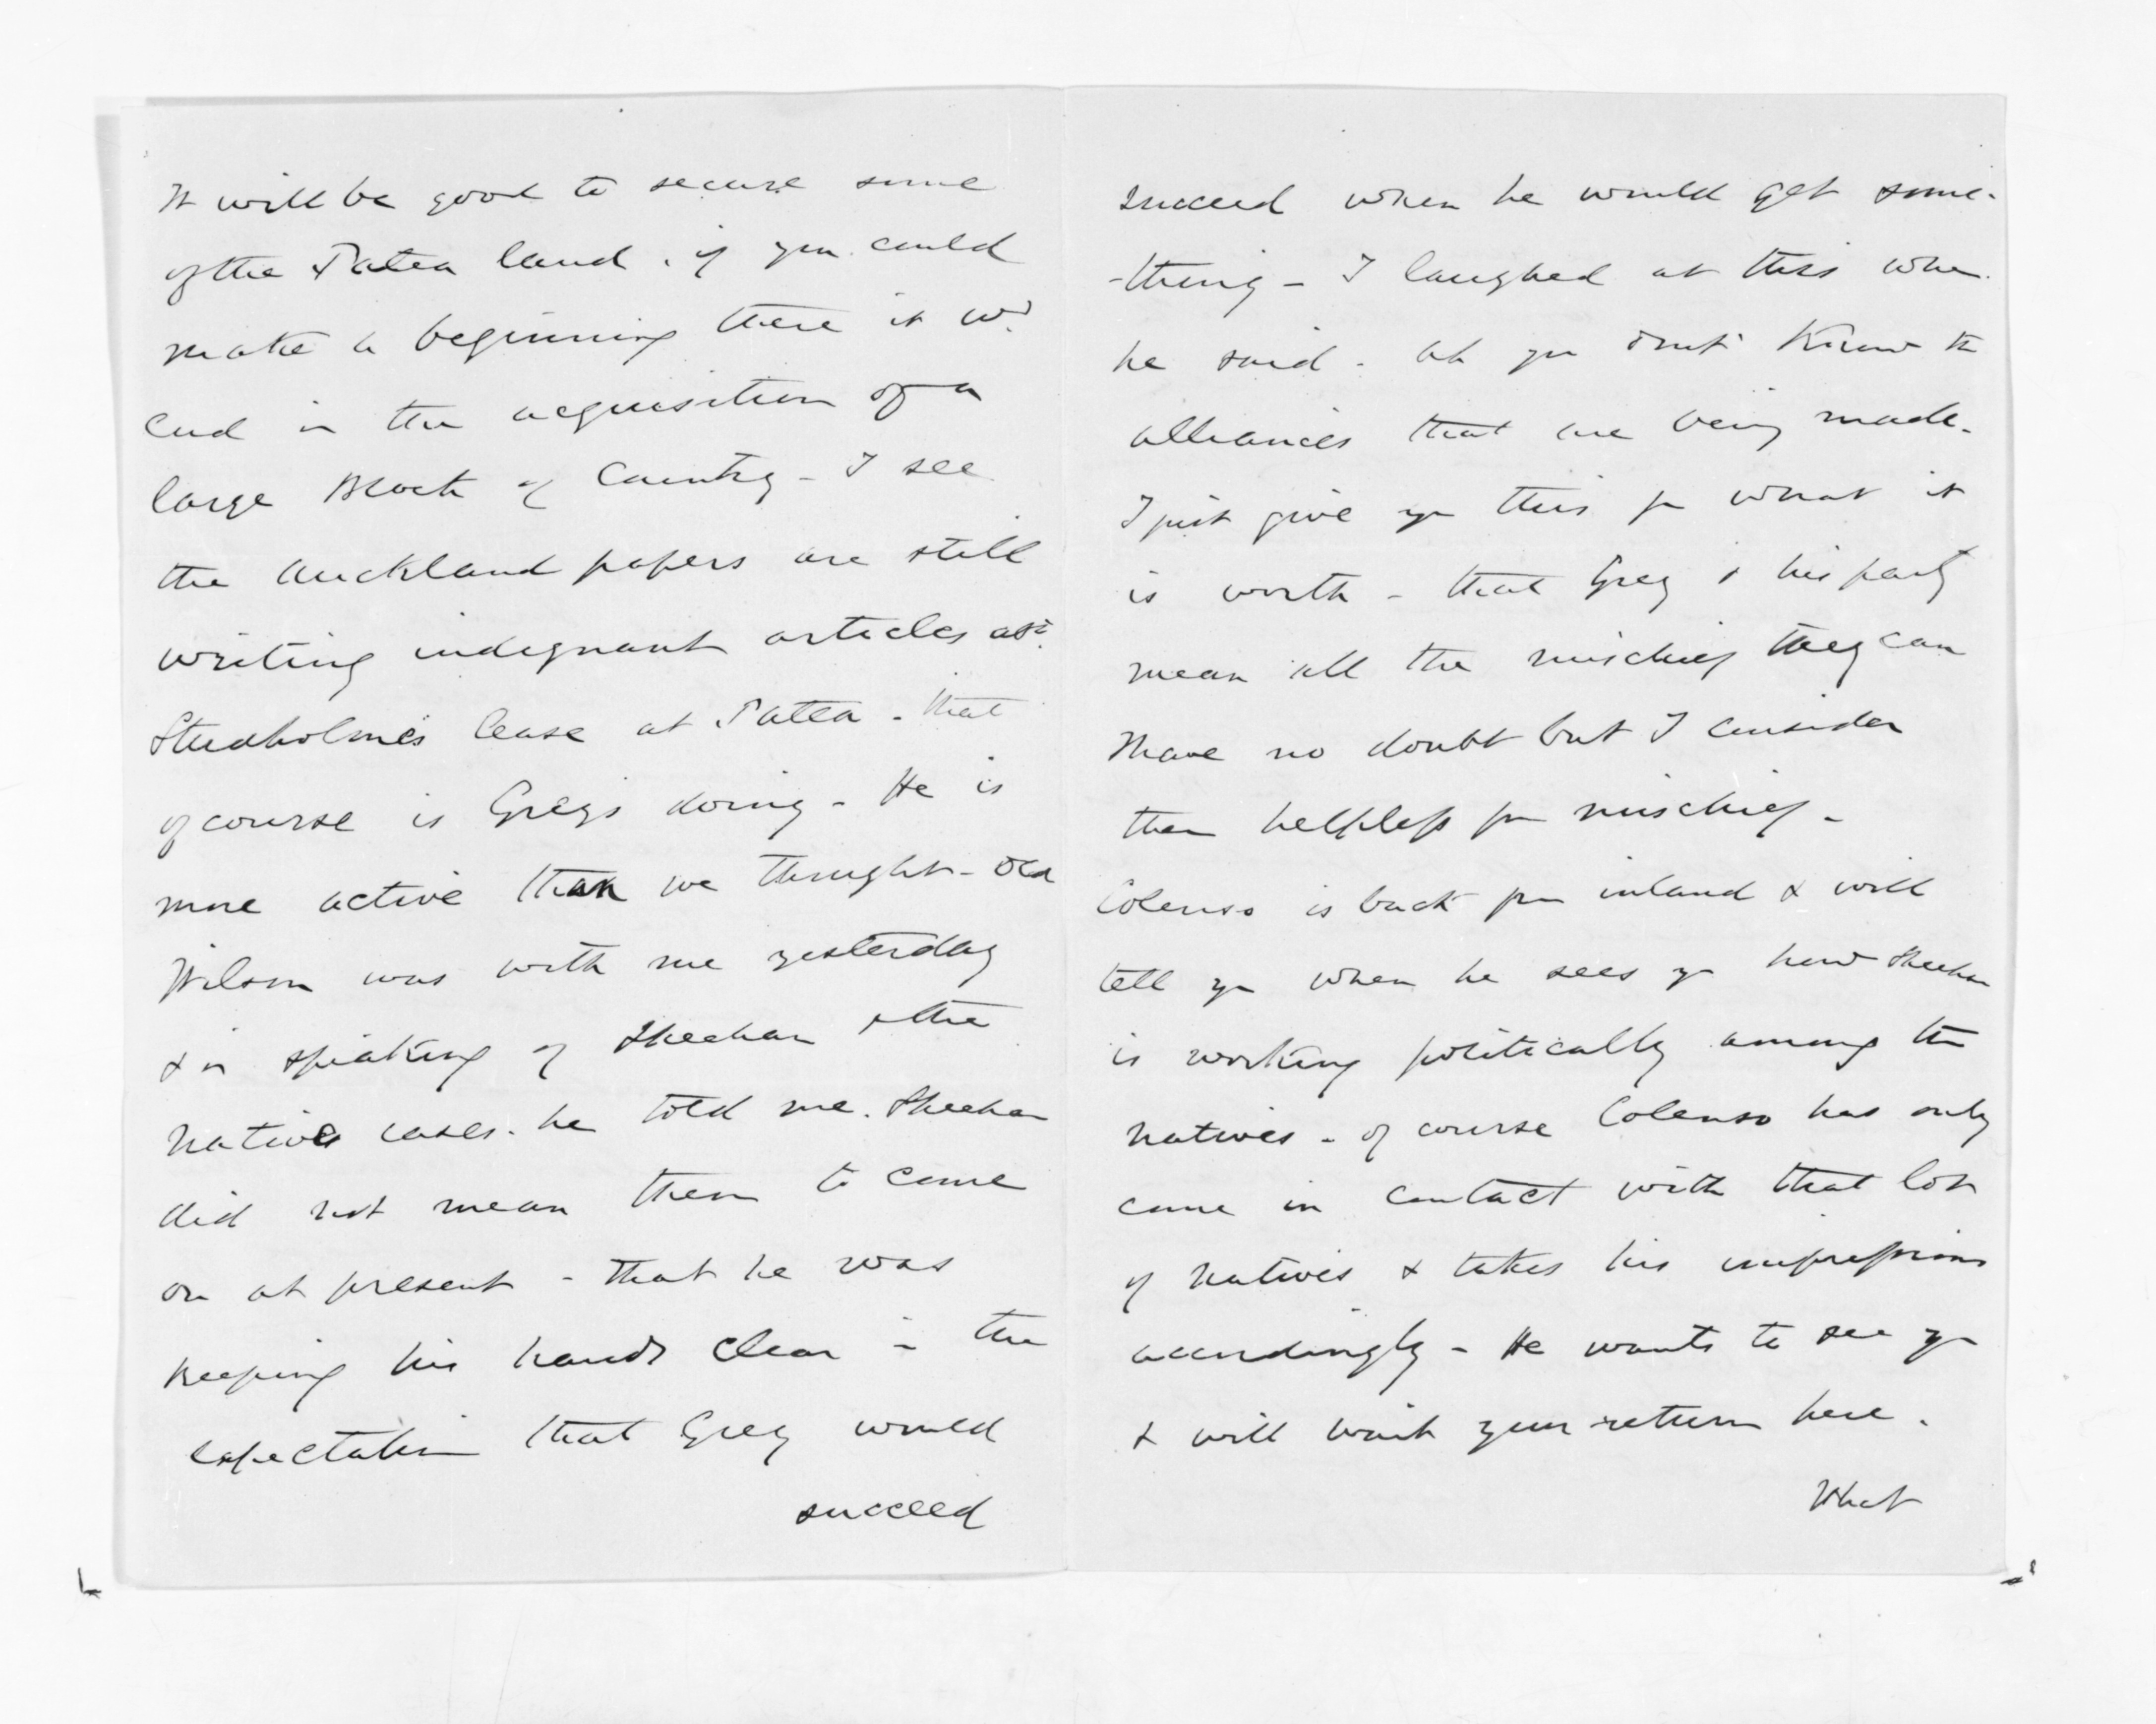 It will be good to secure some
of the Patea land. if you could
make a beginning there it wd.
end in the acquisition of a
large Block of Country - I see
the Auckland papers are still
writing indignant articles abt.
Studholme's lease at Patea - that
of course is Grey's doing - He is
more active than we thought - Old
Wilson was with me yesterday
& in speaking of Sheehan & the
Native cases. he told me. Sheehan
did not mean them to come
on at present - that he was
keeping his hands clear in the
expectation that Grey would
succeed
succeed when he would get some-
-thing - I laughed at this when
he said. Ah you don't know the
alliances that are being made.
I just give you this for what it
is worth - that Grey & his party
mean all the mischief they can
I have no doubt but I consider
them helpless for mischief -
Colenso is back from inland & will
tell you when he sees you how Sheehan
is working politically among the
Natives - of course Colenso has only
come in contact with that lot
of Natives & takes his impressions
accordingly - He wants to see you
& will wait your return here.
What